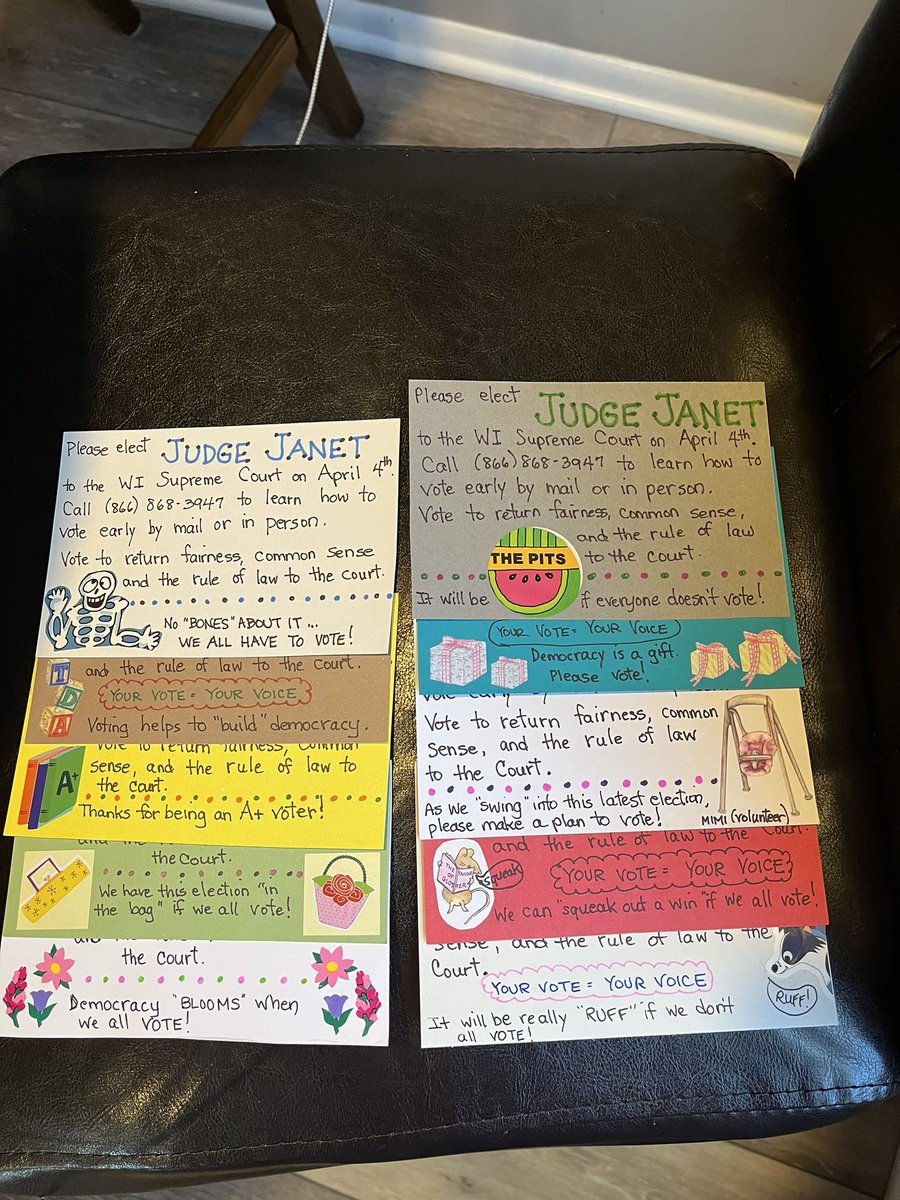 Please elect JUDGE JANET
to the WI Supreme Court on April 4th.
Call (866) 868-3947 to learn how to
vote early by mail or in person.
Vote to return fairness, common sense
and the rule of law to the court.
No "BONES" ABOUT IT...
WE ALL HAVE TO VOTE!
and the rule of law to the court.
T
D
A
YOUR VOTE = YOUR VOICE
Voting helps to "build" democracy.
vote to return fairness, common
sense, and the rule of law to
the court.
A+
Thanks for being an A+ voter!
the court.
We have this election "in
the bag" if we all vote!
the court.
Democracy "BLOOMS" when
we all VOTE!
Please elect JUDGE JANET
to the WI Supreme Court on April 4th.
Call (866) 868-3947 to learn how to
vote early by mail or in person.
Vote to return fairness, common sense,
and the rule of law
to the court.
THE PITS
It will be if everyone doesn't vote!
YOUR VOTE = YOUR VOICE
Democracy is a gift.
Please vote!
Vote to return fairness, common
sense, and the rule of law
to the court.
As we "swing" into this latest election,
please make a plan to vote!
MIMI (volunteer)
and the rule of law to the court.
THE TAILOR OF GLOSTER
squeak
YOUR VOTE = YOUR VOICE
We can "squeak out a win" if we all vote!
sense, and the rule of law to the
Court.
YOUR VOTE = YOUR VOICE
RUFF!
It will be really "RUFF" if we don't
all VOTE!